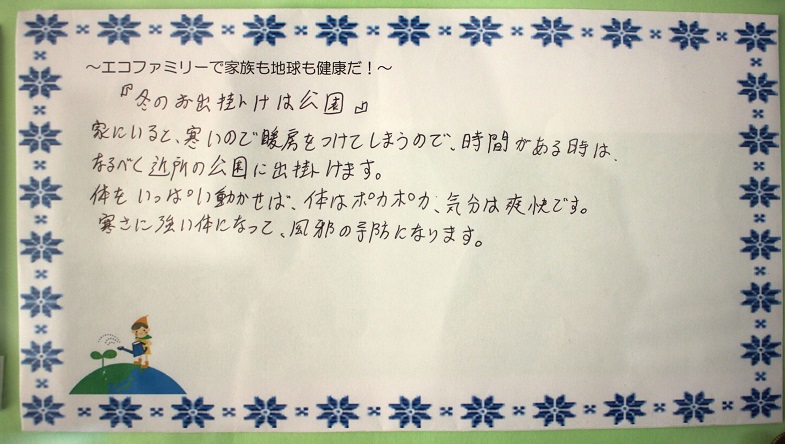 ～エコファミリーで家族も地球も健康だ！～
『冬のお出掛けは公園』
家にいると、寒いので暖房をつけてしまうので、時間がある時は、
なるべく近所の公園に出掛けます。
体をいっぱい動かせば、体はポカポカ、気分は爽快です。
寒さに強い体になって、風邪の予防になります。